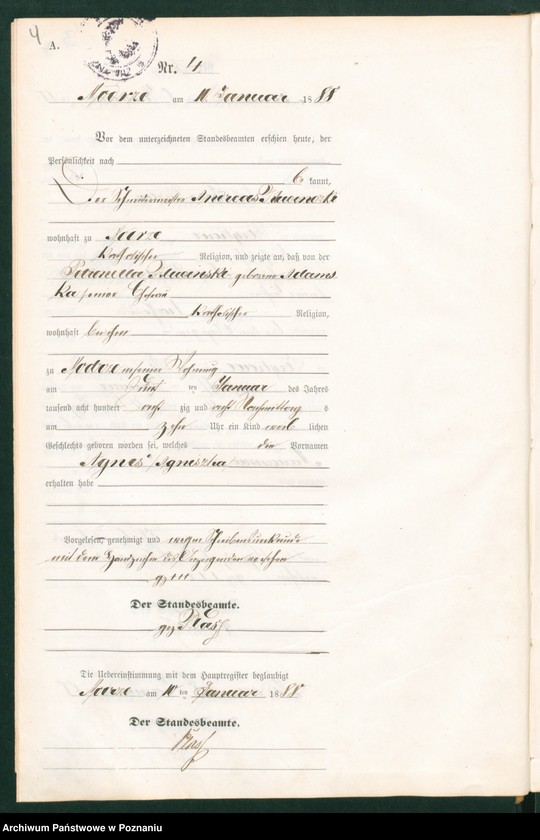 4
A.
Nr. 4
Modrze am 10 Januar 1888
Vor dem unterzeichneten Standesbeamten erschien heute, der
Persönlichkeit nach
be kannt,
Der Andreas
wohnhaft zu Modrze
katholischer Religion, und zeigte an, daß von der
Petronella geborene Adams
ka seiner Ehefrau
katholischer Religion,
wohnhaft bei ihm
zu Modrze in seiner Wohnung
am ten Januar des Jahres
tausend acht hundert acht zig und acht Vormittags
um zehn Uhr ein Kind weib lichen
Geschlechts geboren worden sei, welches den Vornamen
Agnes /Agnieszka
erhalten habe
Vorgelesen, genehmigt und wegen Schreibensunkunde
mit dem Handzeichen des Anzeigenden versehen
gez +++
Der Standesbeamte.
gez
Die Uebereinstimmung mit dem Hauptregister beglaubigt
Modrze am 10 ten Januar 1888
Der Standesbeamte.
Archiwum Państwowe w Poznaniu